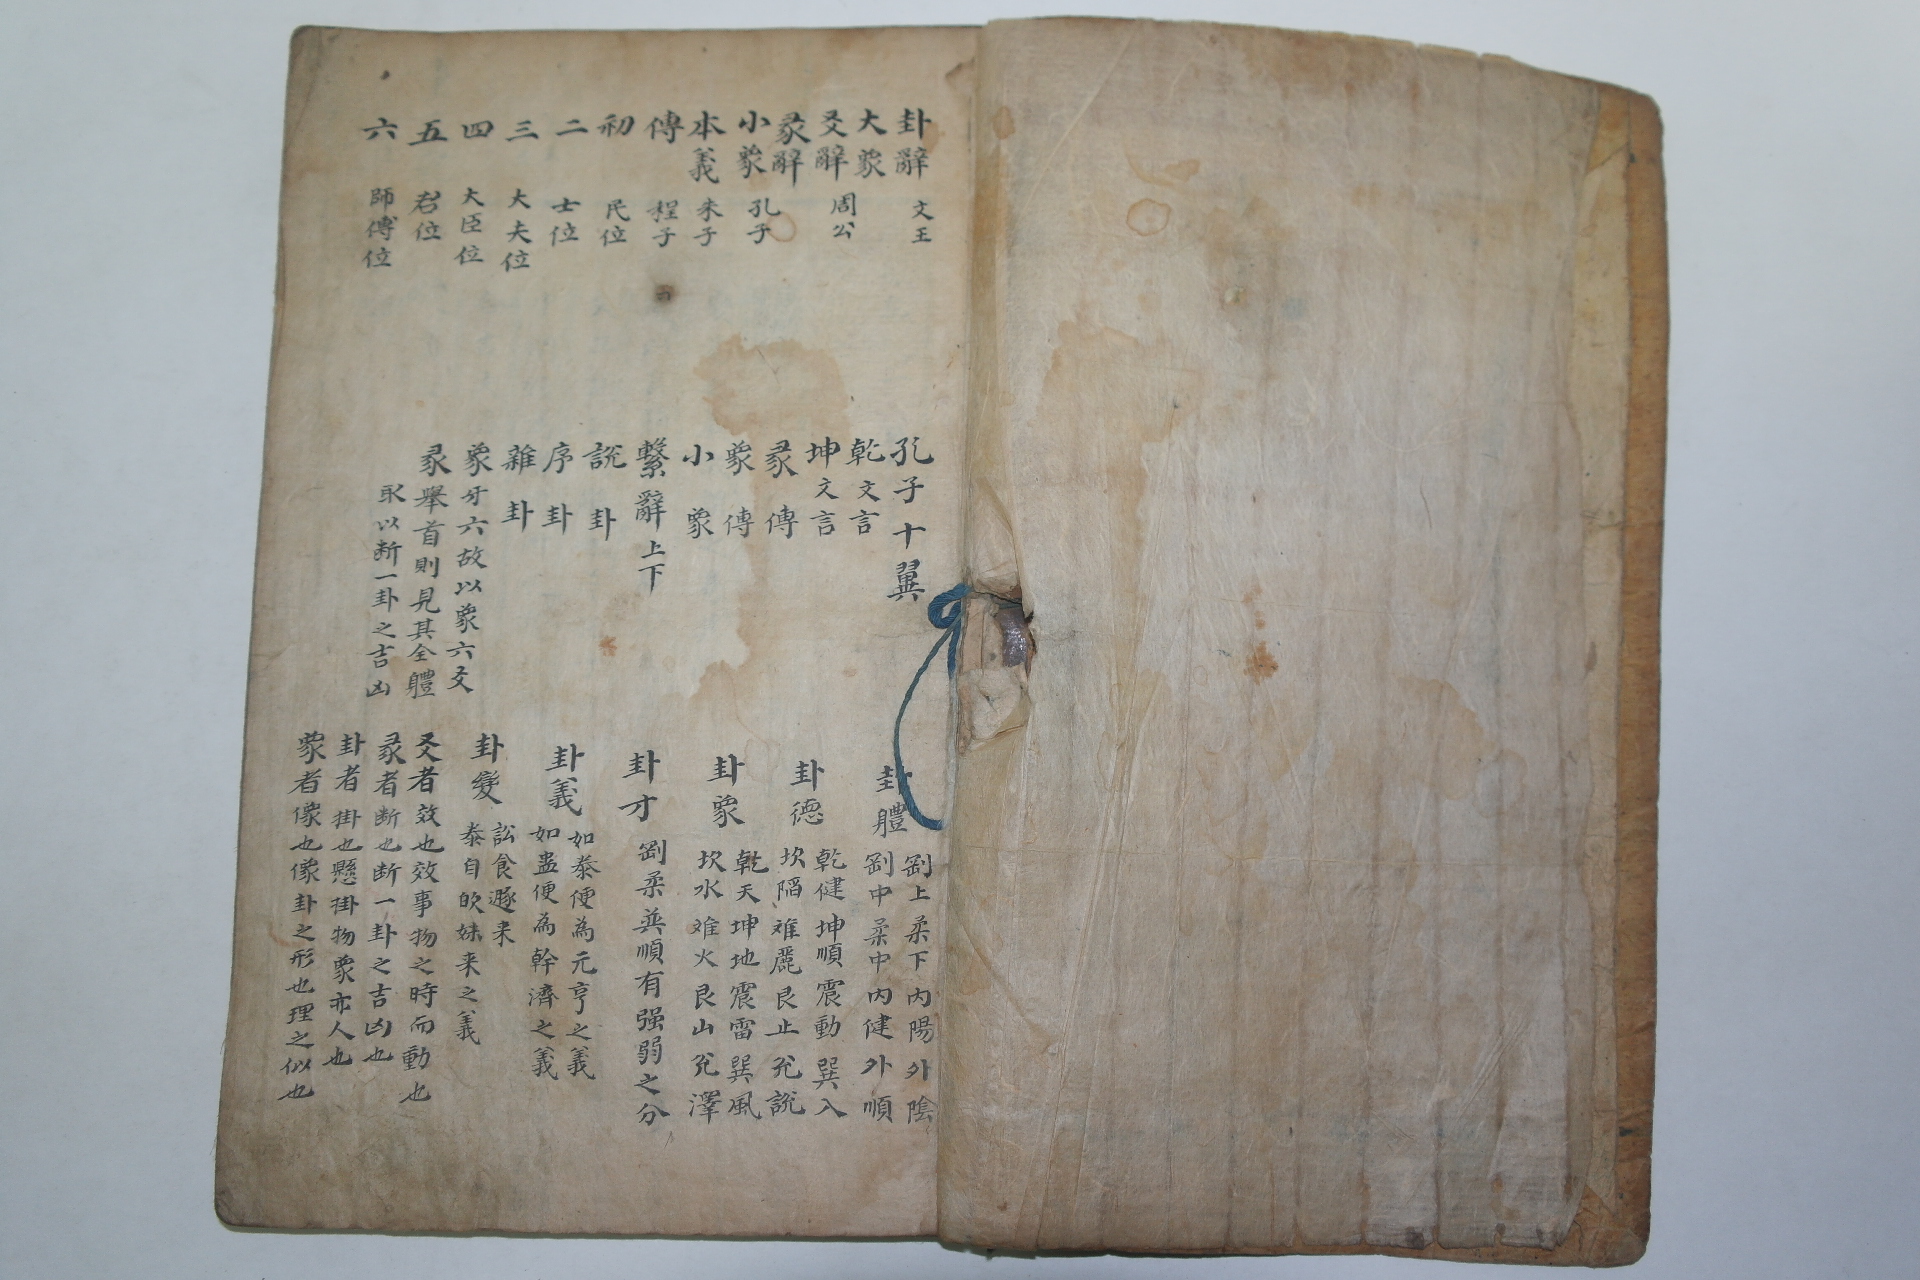 卦辭 文王
大象
爻辭 周公
彖辭
小象 孔子
本義 朱子
傳 程子
初 民位
二 士位
三 大夫位
四 大臣位
五 君位
六 師傅位
孔子十翼
乾文言
坤文言
彖傳
象傳
小象
繫辭上下
說卦
序卦
雜卦
象牙六故以象六爻
彖舉首則見其全體
取以断一卦之吉凶
卦體 剛上柔下內陽外陰
剛中柔中內健外順
卦德 乾健坤順震動巽入
坎陷难麗艮止兊說
卦象 乾天坤地震雷巽風
坎水难火艮山兊澤
卦才 剛柔巽順有强弱之分
卦義 如泰便為元亨之義
如蠱便為幹濟之義
卦變 訟食遯来
泰自欤妹来之義
爻者效也效事物之時而動也
彖者断也断一卦之吉凶也
卦者掛也懸掛物象示人也
象者像也像卦之形也理之似也